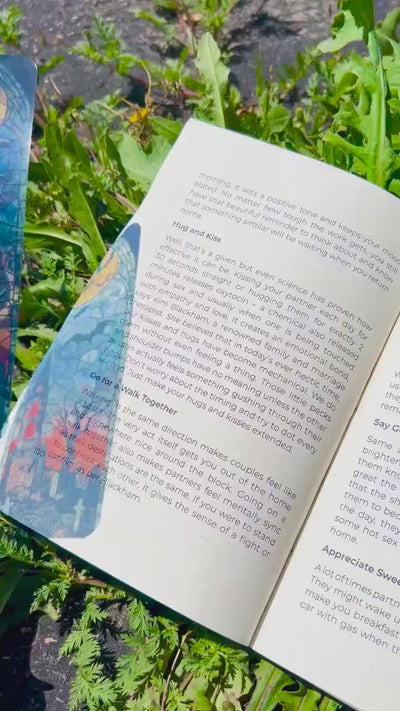 morning, it sets a positive tone and keeps you mood
elated. No matter how tough the work gets, you still
have that beautiful reminder to think about and know
that something similar will be waiting when you return
home.
Hug and Kiss
Well, that's a given but even science has proven how
effective it can be. Kissing your partner each day for
30 seconds straight or hugging them for exactly 2
minutes releases oxytocin – a chemical also released
during sex and usually when one is being touched
with empathy and love. It creates an emotional bond,
says Kim Blackham, a renowned family and marriage
therapist. She believes that in today's ever hectic time,
kisses and hugs have become mechanical. We do
without even feeling a thing. Those little pecs
shoulder bumps have no meaning unless the other
actually feels something gushing through their
Don't worry about the timing and try to dot every
Just make your hugs and kisses extended.
Go for a Walk Together
Walking in the same direction makes couples feel
very act itself gets you out of the home
nice around the block. Going on a
walk together also makes partners feel mentally sync
as their destinations are the same. If you were to stand
confront each other, it gives the sense of a fight or
corner, as per Blackham.
us
rema
Say G
Same a
brighten
them kn
great the
that the sh
them to bec
the day, they
some hot sex
home.
Appreciate Swee
A lot of times partn
They might wake u
make you breakfast
car with gas when th